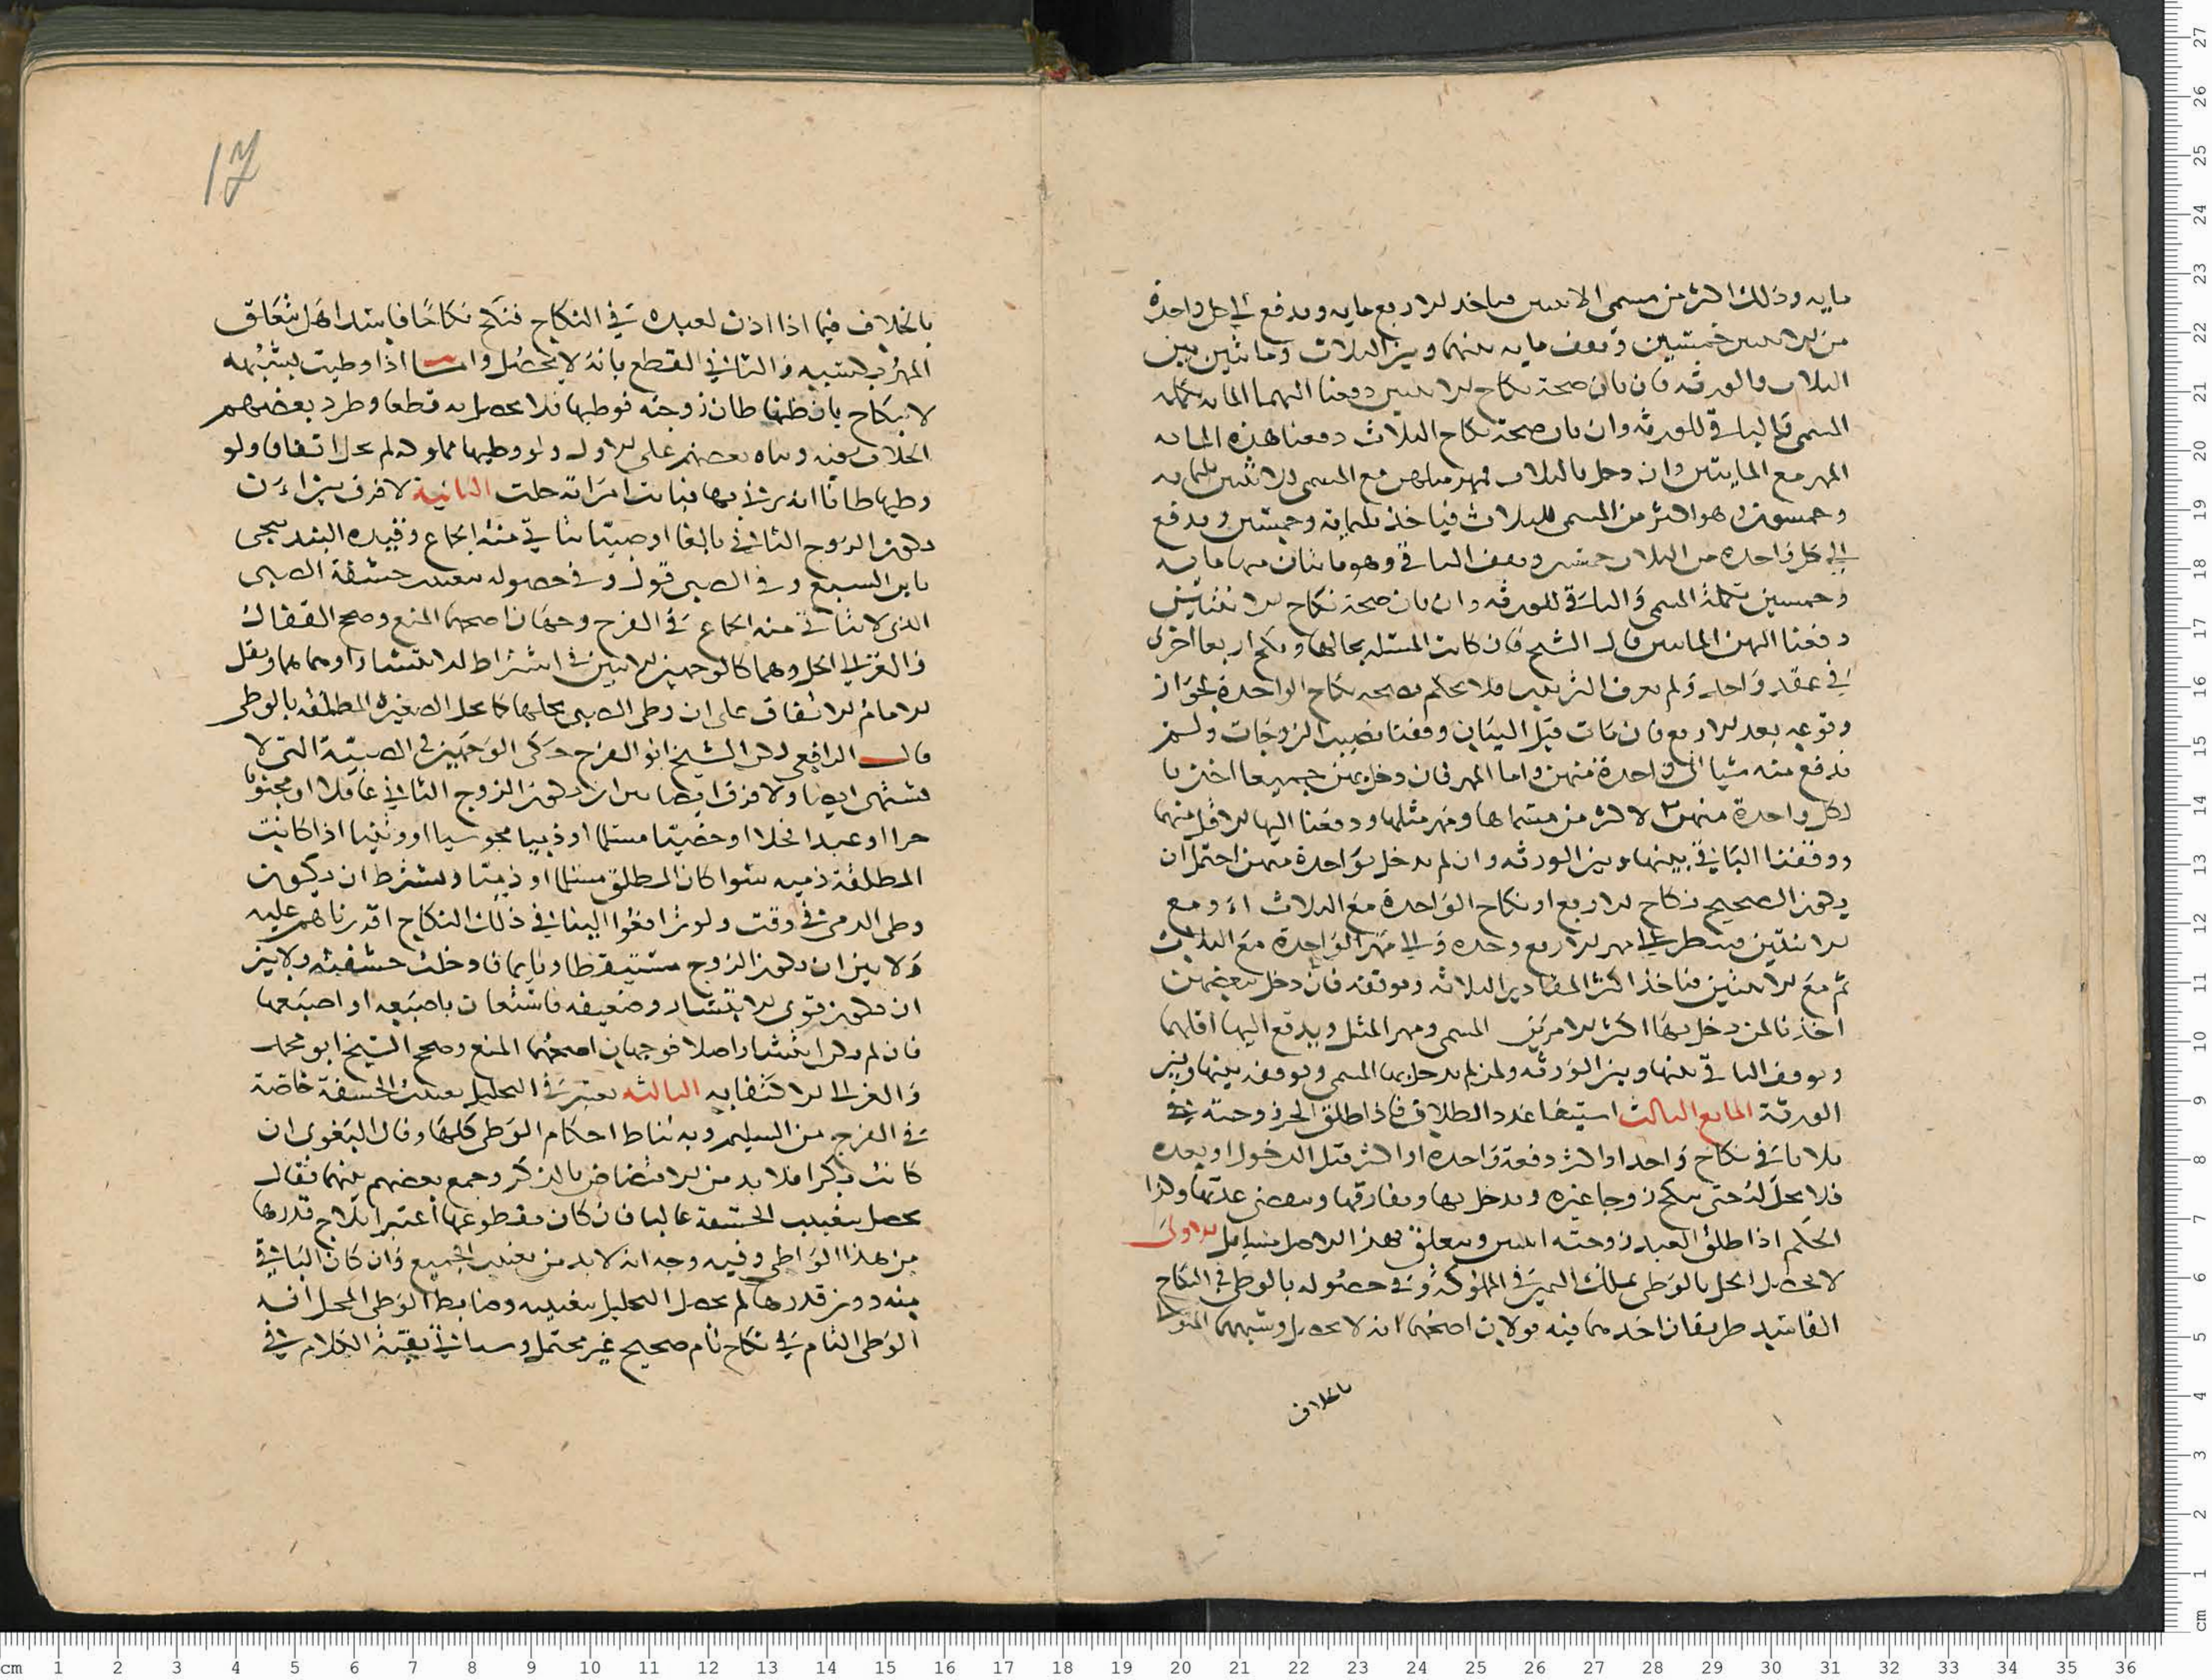 مايه وذلك اكثر من مسمى الاثنتين فياخذ الاربع مايه ويدفع الى كل واحدة
من الاثنتين خمسين وتوقف مايه بينهما وبين الثلاث ومائتين بين
الثلاث والورثه فان بان صحة نكاح الاثنتين دفعنا اليهما المايه تكمله
المسمى والباقي للورثه وان بان صحة نكاح الثلاث دفعنا هذه المايه
المهر مع المايتين وان دخل بالثلاث فمهر مثلهن مع المسمى للاثنتين ثلثمايه
وخمسون وهو اكثر من المسمى للثلاث فياخذ ثلثمايه وخمسين ويدفع
الى كل واحدة من الثلاث خمسين ويقف الباقي وهو مائتان منها مايه
وخمسين تكملة المسمى والباقي للورثه وان بان صحة نكاح الاثنتين
دفعنا اليهن المايتين قال الشيخ فان كانت المسئله بحالها ونكح اربعا اخرى
في عقد واحد ولم يعرف الترتيب فلا نحكم بصحه نكاح الواحدة لجواز
وقوعه بعد الاربع فان مات قبل البيان وقفنا نصيب الزوجات ولم
ندفع منه شيا الى واحدة منهن واما المهر فان دخل بهن جميعا اخذنا
لكل واحدة منهن الاكثر من مسماها ومهر مثلها ودفعنا اليها الاقل منهما
ووقفنا الباقي بينها وبين الورثه وان لم يدخل بواحدة منهن احتمل ان
يكون الصحيح نكاح الاربع او نكاح الواحدة مع الثلاث او مع
الاثنتين فينظر الى مهر الاربع وحده والى مهر الواحدة مع الثلاث
ثم مع الاثنتين فياخذ اكثر المقادير الثلاثه ونوقفه فان دخل ببعضهن
اخذنا لمن دخل بها اكثر الامرين المسمى ومهر المثل ويدفع اليها اقلهما
ويوقف الباقي بينها وبين الورثه ولمن لم يدخل بها المسمى ويوقف بينها وبين
الورثة المانع الثالث استيفا عدد الطلاق فاذا طلق الحر زوجته
ثلاثا في نكاح واحد او اكثر دفعة واحده او اكثر قبل الدخول او بعده
فلا تحل له حتى تنكح زوجا غيره ويدخل بها ويفارقها وتنقضي عدتها وكذا
الحكم اذا طلق العبد زوجته اثنتين ويتعلق بهذا الاصل مسايل الاولى
لا يحصل الحل بالوطى بملك اليمين في المملوكة وفي حصوله بالوطى في النكاح
الفاسد طريقان احدهما فيه قولان اصحهما انه لا يحصل وشبههما
بالخلاف
بالخلاف فيما اذا اذن لعبده في النكاح فنكح نكاحا فاسدا هل يتعلق
المهر بكسبه والثاني القطع بانه لا يحصل واما اذا وطيت بشبهه
لا بنكاح بان ظنها ظان زوجته فوطيها فلا يحصل به قطعا وطرد بعضهم
الخلاف فيه وبناه بعضهم على الاول ولو وطيها مملوكه لم يحل اتفاقا ولو
وطيها ظانا انه يزني بها فبانت امراته حلت الثانية لا فرق بين ان
يكون الزوج الثاني بالغا او صبيا يتاتى منه الجماع
بابن السبع وفي الصبي قول وفي حصوله بتغييب حشفة الصبي
الذي لا يتاتى منه الجماع في الفرج وجهان اصحهما المنع وصحح القفال
والغزالي الحل وهما كالوجهين الاتيين في اشتراط الانتشار او هما هما ونقل
الامام الاتفاق على ان وطى الصبي يحلها كما تحل الصغيرة المطلقه بالوطى
قال الرافعي لكن الشيخ ابو الفرج حكى الوجهين في الصبية التي لا
تشتهى ايضا ولا فرق ايضا بين ان يكون الزوج الثاني عاقلا او مجنونا
حرا او عبدا فحلا او خصيا مسلما او ذميا مجوسيا او وثنيا اذا كانت
المطلقة ذميه سوا كان المطلق مسلما او ذميا ويشترط ان يكون
وطى الذمي في وقت ولو ترافعوا الينا في ذلك النكاح اقررناهم عليه
ولا بين ان يكون الزوج مستيقظا او نايما فادخلت حشفته ولا بين
ان يكون قوى الانتشار وضعيفه فاستعان باصبعه او اصبعها
فان لم يكن انتشار اصلا فوجهان اصحهما المنع وصحح الشيخ ابو محمد
والغزالي الاكتفا به الثالثه يعتبر في التحليل تغييب الحشفة خاصة
في الفرج من السليم وبه تناط احكام الوطى كلها وقال البغوى ان
كانت بكرا فلا بد من الافتضاض بالذكر وجمع بعضهم بينهما فقال
يحصل بتغييب الحشفة غالبا فان كان مقطوعها اعتبر ايلاج قدرها
من هذا الواطى وفيه وجه انه لا بد من تغييب الجميع وان كان الباقي
منه دون قدرها لم يحصل التحليل بتغييبه وضابط الوطى المحل انه
الوطى التام في نكاح تام صحيح غير محتمل وسياتي بقية الكلام في
17